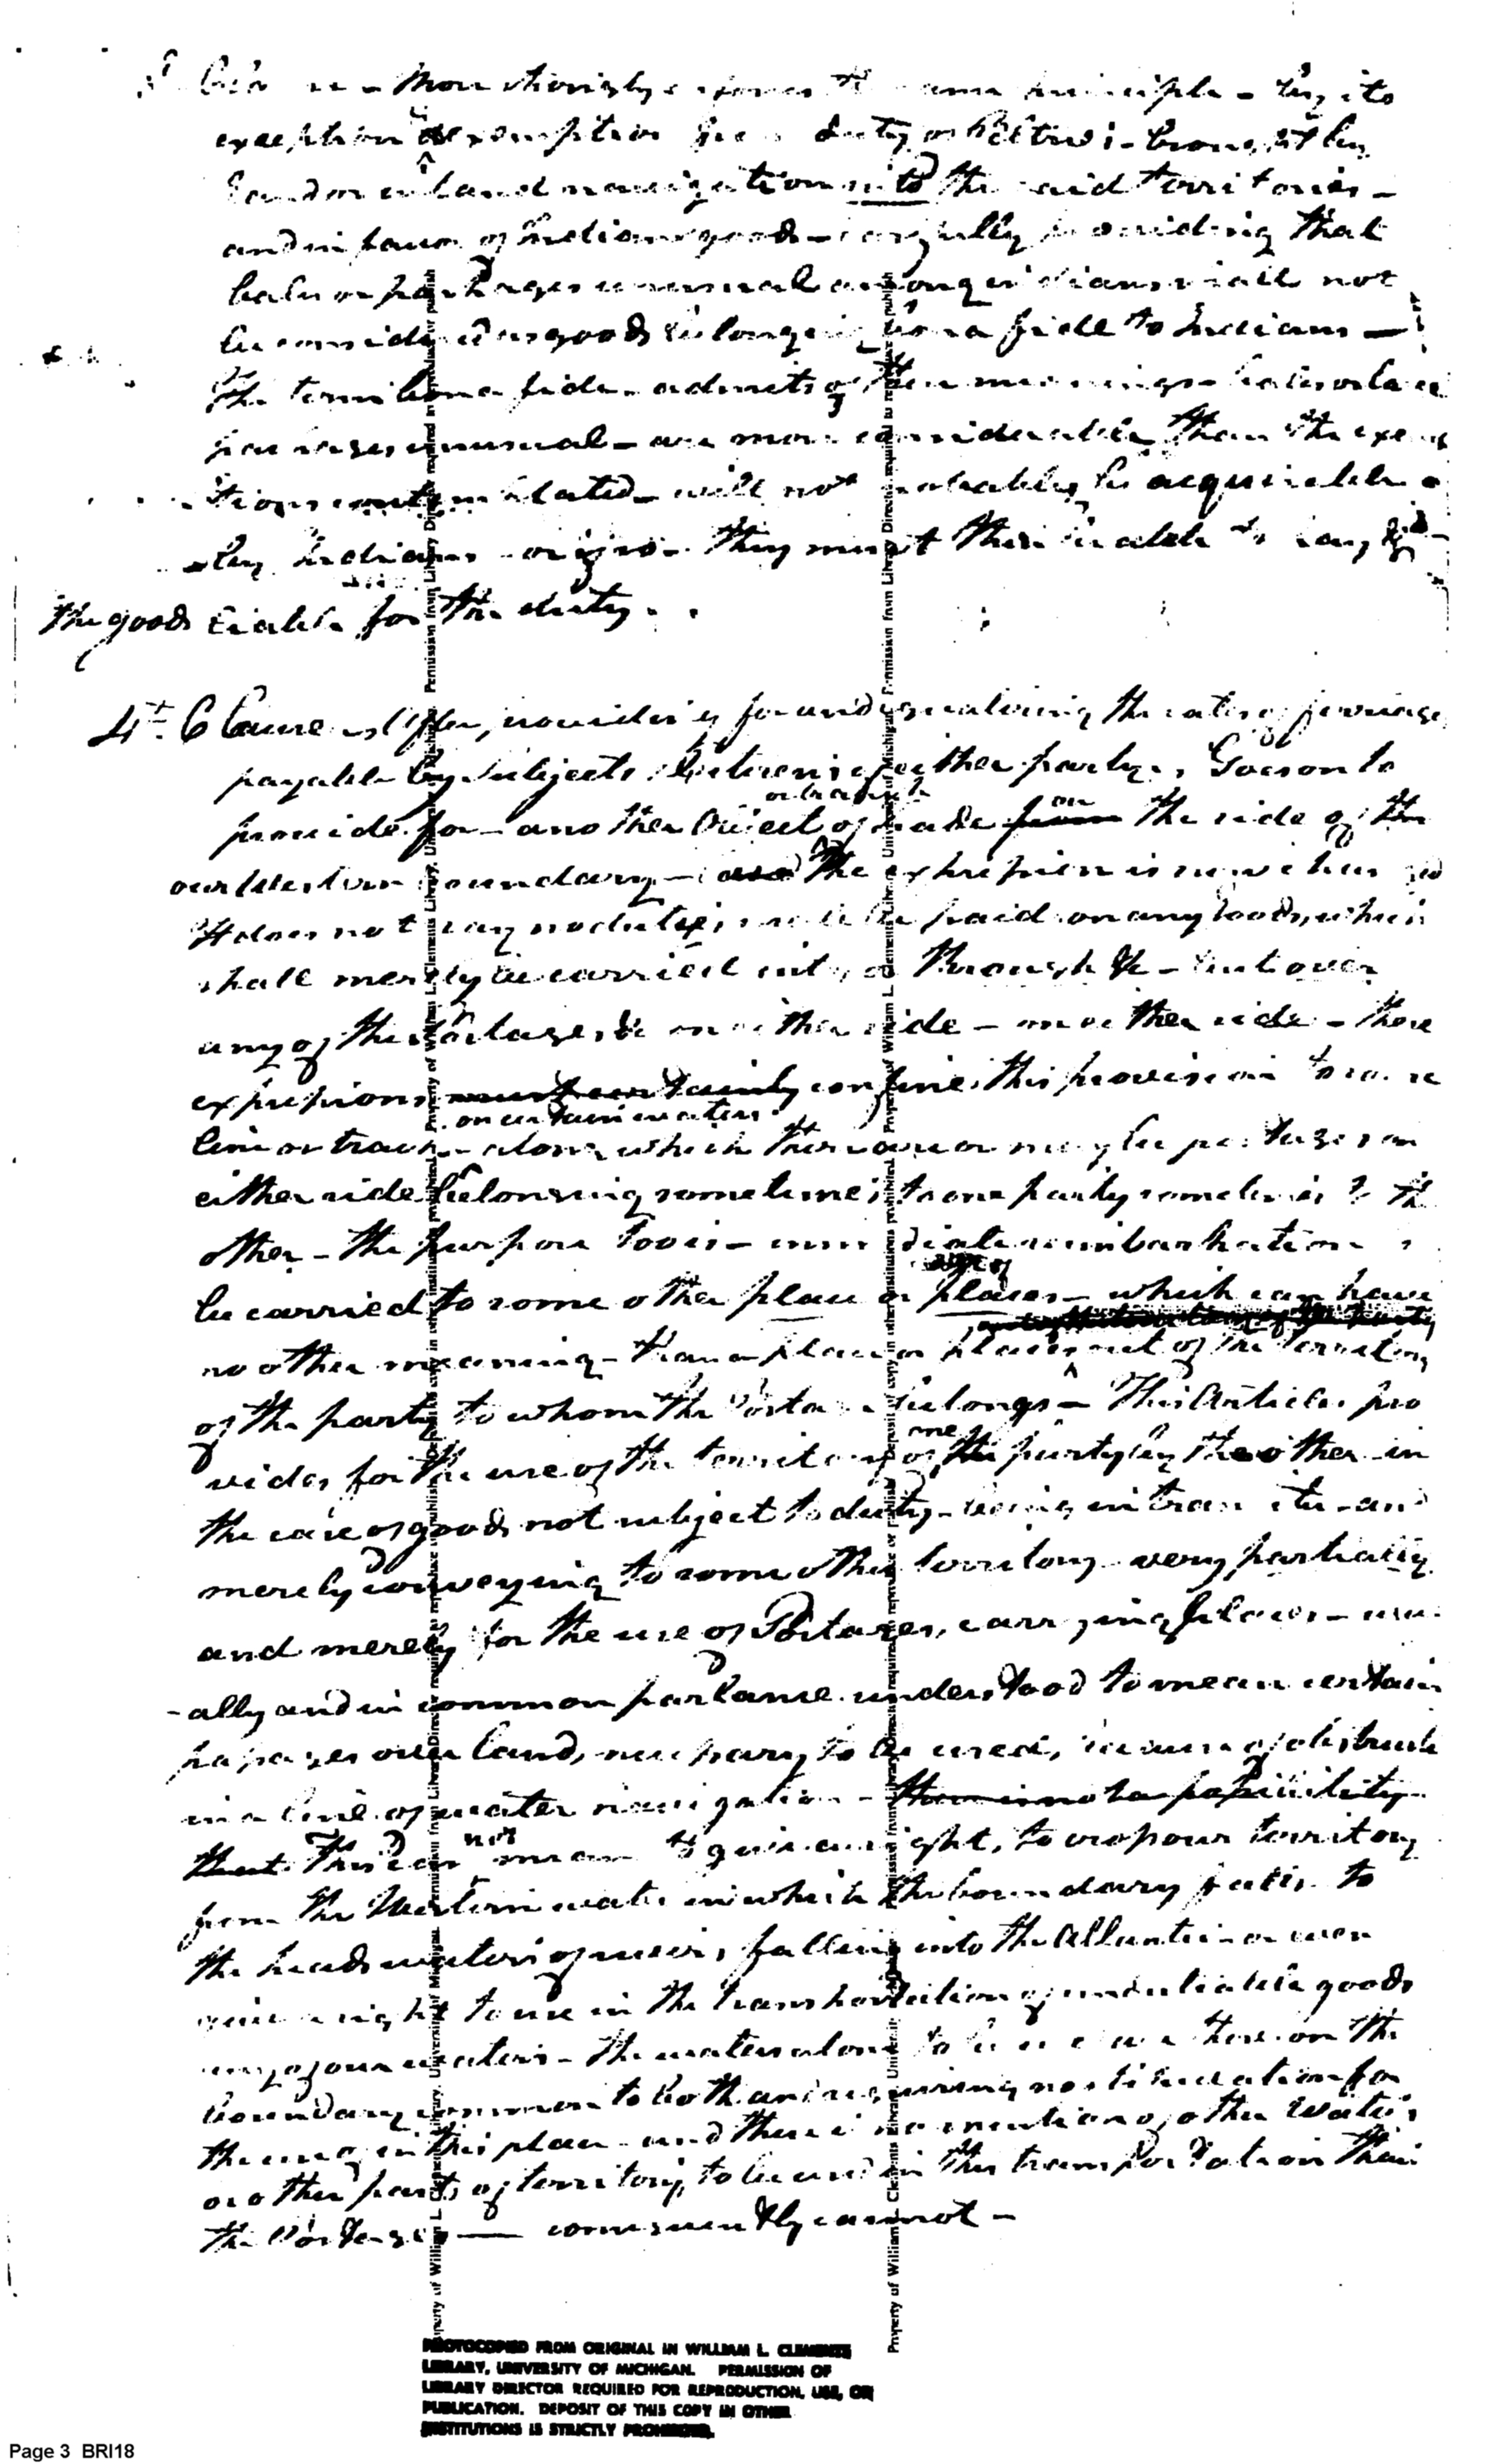 more strongly the same principle - by its
exception & exemption from duty on Peltries brought by
land or inland navigation into the said territories -
and in favor of Indian goods - carefully providing that
bales or packages unusual among indians shall not
be considered as goods belonging bona fide to Indians -
The term bona fide - admits of
unusual - are more considerable than the
will not probably be acquirable
by Indians they must then be able to
the goods liable for the duty.
4th Clause after providing for and equalizing the rates of ferriage
payable by subjects & Citizens of either party. Goes on to
or branch
provide for - another Object of trade from on the side of the
our Western boundary - and The expression is now
It does not say no duties shall be paid on any Goods, which
shall merely be carried into, or through & - but over
any of the Portages &c on either side - on either side - these
expressions must certainly confine this provision to some
on certain waters
line or track - along which there are or may be portages on
either side belonging sometimes to one party sometimes to the
other - the purpose too is - immediate reimbarkation
be carried to some other place or places - which can have
no other meaning - than a place or places out of the territory
of the party to whom the Portage belongs - This Article pro
one
vides for the use of the territory of the party by the other in
the case of goods not subject to duty - being in transitu - and
merely conveying to some other territory - very partially
and merely for the use of Portages, carrying places - usu
-ally and in common parlance understood to mean certain
passages over land, necessary to be used, because of obstructs
in a line of water navigation - there is not a possibility
that This can not mean to give any right, to cross our territory
from the Western waters in which the boundary is to
the head waters of rivers falling into the Atlantic - or even
give a right to use in the transportation of undutiable goods
any of our waters - the waters alone to be used are those on the
boundary common to both and requiring no stipulation for
the use in this place - and there is no mention of other Waters
or other parts of territory, to be used in this transportation than
the Portages — consequently cannot -
PHOTOCOPIED FROM ORIGINAL IN WILLIAM L. CLEMENTS
LIBRARY, UNIVERSITY OF MICHIGAN. PERMISSION OF
LIBRARY DIRECTOR REQUIRED FOR REPRODUCTION, USE, OR
PUBLICATION. DEPOSIT OF THIS COPY IN OTHER
INSTITUTIONS IS STRICTLY PROHIBITED.
Page 3 BRI18